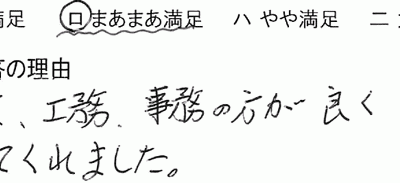 満足 ロ まあまあ満足 ハ やや満足 ニ
答の理由
、工務、事務の方が良く
てくれました。